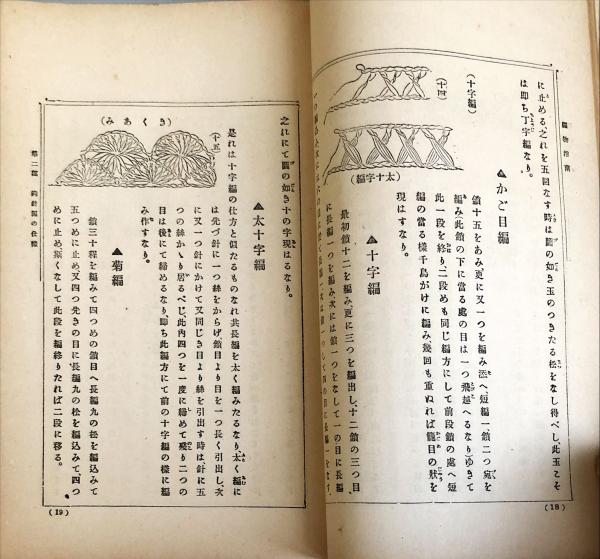 編物指南
に止める之れを五囘なす時は圖の如き玉のつきたる松をなし得べし、此玉こそ
は即ち丁字編なり。
▲かご目編
鎖十五をあみ更に又一つを編み添へ、短編一、鎖二つ宛を
編み(此鎖の下に當る處の目は一つ飛越へるなり)ゆきて
此一段を終り二段めも同じ編方にして前段鎖の處へ短
編の當る樣千鳥がけに編み幾囘も重ぬれば籠目の狀を
現はすなり。
(十字編)
(十四)
(編字十太)
▲十字編
最初鎖十二を編み、更に三つを編出し、十二鎖の三つ目
に長編一つを編み、次には鎖一つをなして一の目に長編
(18)
之れにて圖の如き十の字現はるなり。
▲太十字編
是れは十字編の仕方と似たるものなれ共長編を太く編みたるなり、太く編に
は先づ針に一つ絲をからげ、鎖目より目を一つ長く引出し、次
に又一つ針にかけて又同じき目より絲を引出す時は針に五
つの絲かゝり居るべし、此内四つを一度に締めて殘り二つの
目は後にて締めるなり、即ち此編方にて前の十字編の樣に編
み作すなり。
(みあくき)
(十五)
▲菊編
鎖三十程を編みて四つめの鎖目へ長編九の松を編込みて
五つめに止め又四つ先きの目に長編九の松を編込みて、四つ
めに止め斯くなして此段を編終りたれば二段に移る。
第二篇 鈎針編の仕方
(19)